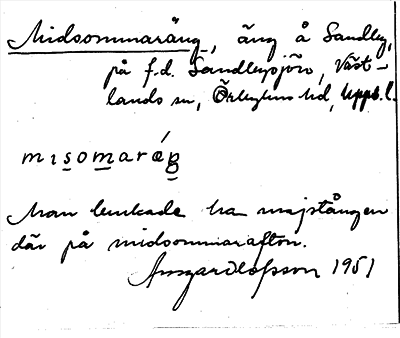 Midsommaräng, äng å Sandley,
på f.d. Sandleysjön, Väst-
lands sn, Örbyhus hd, Upps. l.
mɪsomaréŋ
Man brukade ha majstången
där på midsommarafton.
Ansgar Olofsson 1951